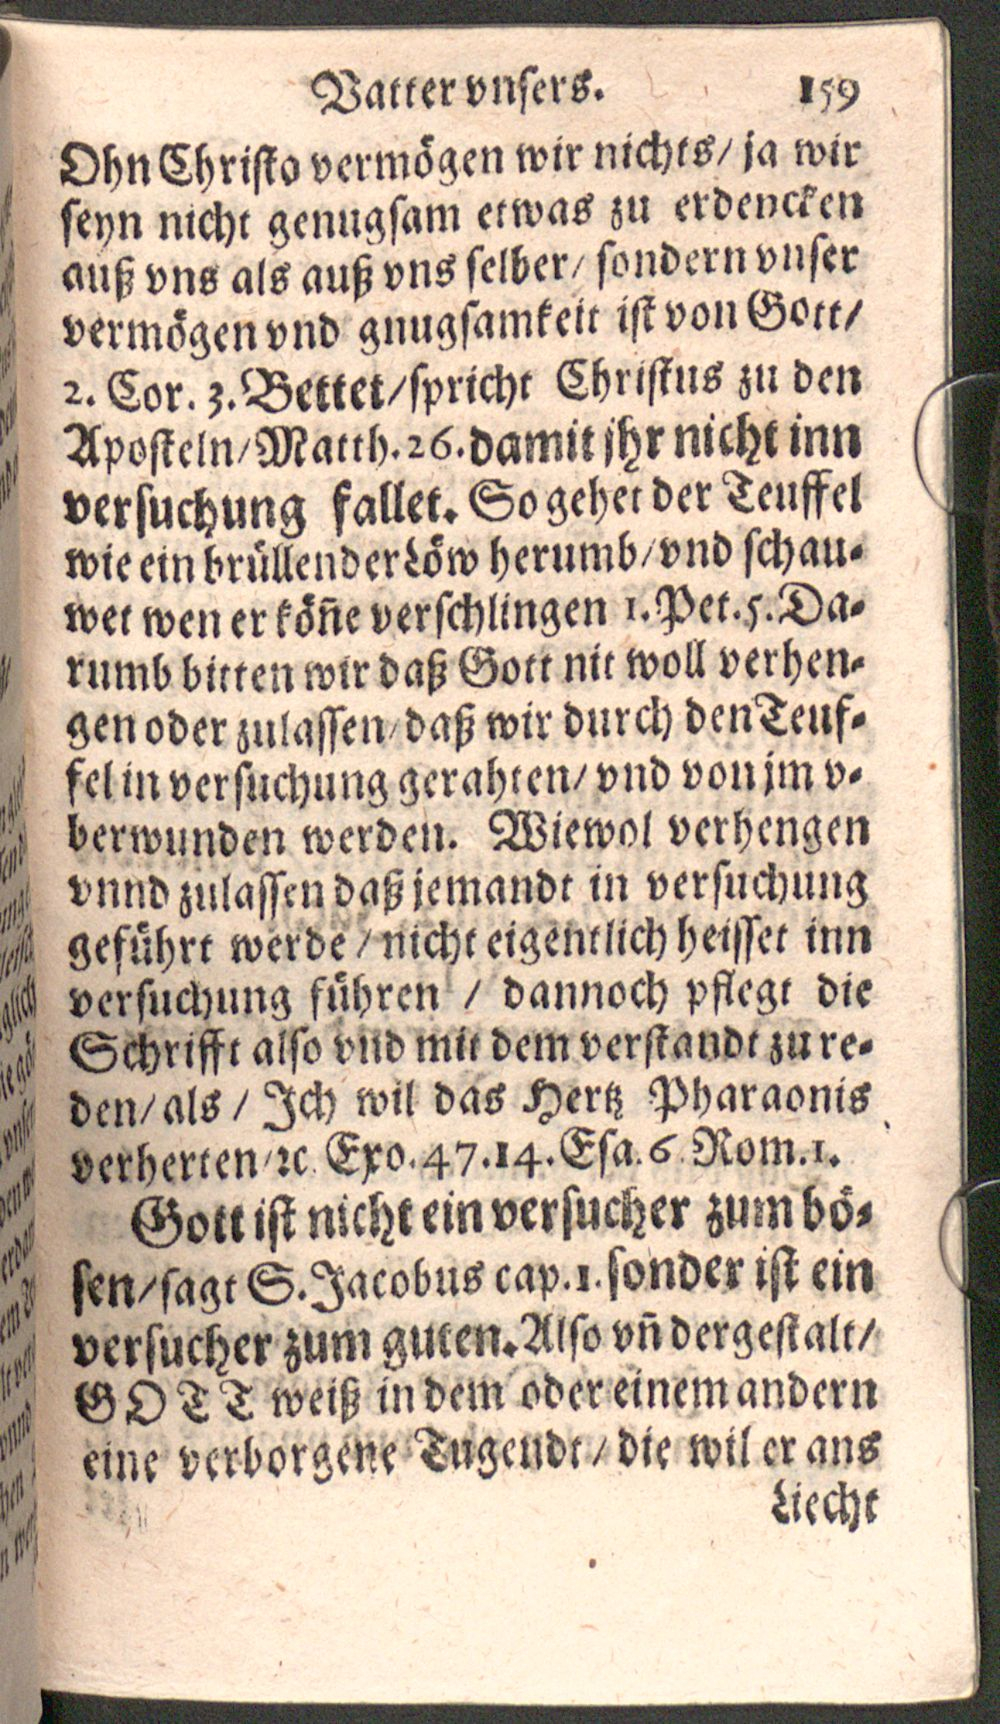 Vatter vnsers. 159
Ohn Christo vermögen wir nichts/ ja wir
seyn nicht genugsam etwas zu erdencken
auß vns als auß vns selber/ sondern vnser
vermögen vnd gnugsamkeit ist von Gott/
2. Cor. 3. Bettet/ spricht Christus zu den
Aposteln/ Matth. 26. damit jhr nicht inn
versuchung fallet. So gehet der Teuffel
wie ein brüllender Löw herumb/ vnd schau-
wet wen er köñe verschlingen 1. Pet. 5. Da-
rumb bitten wir daß Gott nit woll verhen-
gen oder zulassen/ daß wir durch den Teuf-
fel in versuchung gerahten/ vnd von jm v-
berwunden werden. Wiewol verhengen
vnnd zulassen daß jemandt in versuchung
geführt werde / nicht eigentlich heisset inn
versuchung führen / dannoch pflegt die
Schrifft also vnd mit dem verstandt zu re-
den/ als / Jch wil das Hertz Pharaonis
verherten/ ꝛc. Exo. 47. 14. Esa. 6. Rom. 1.
Gott ist nicht ein versucher zum bö-
sen/ sagt S. Jacobus cap. 1. sonder ist ein
versucher zum guten. Also vñ dergestalt/
GOTT weiß in dem oder einem andern
eine verborgene Tugendt/ die wil er ans
Liecht